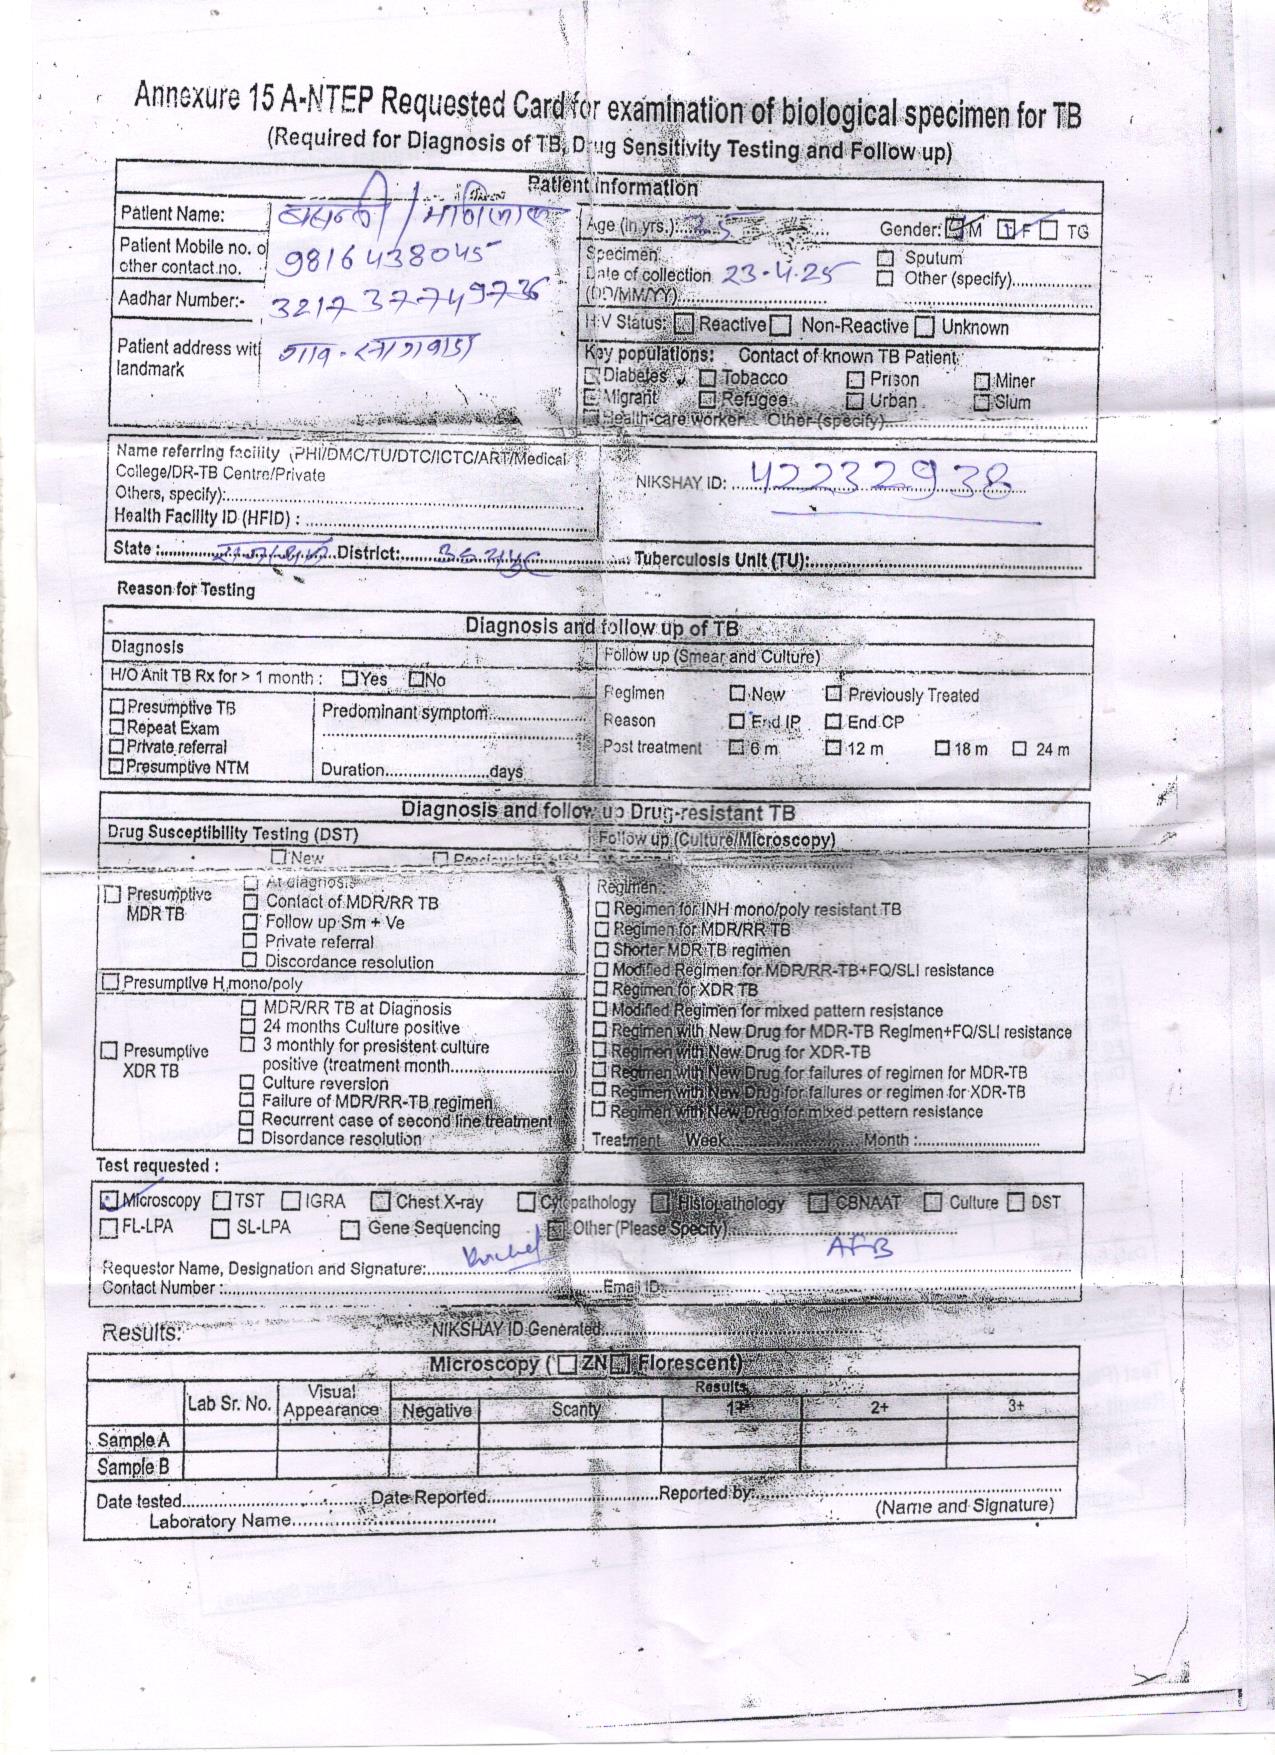 Annexure 15 A-NTEP Requested Card for examination of biological specimen for TB
(Required for Diagnosis of TB, Drug Sensitivity Testing and Follow up)
Patient information
Patient Name:
Age (in yrs.): 35 Gender: M F TG
Patient Mobile no. o
other contact no. 9816438045
Specimen
Date of collection 23-4-25
(DD/MM/YY)
Sputum
Other (specify)
Aadhar Number:- 321737749736
HIV Status: Reactive Non-Reactive Unknown
Patient address wit
landmark
गांव-
Key populations: Contact of known TB Patient
Diabetes Tobacco Prison Miner
Migrant Refugee Urban Slum
Health-care worker Other (specify)
Name referring facility (PHI/DMC/TU/DTC/ICTC/ART/Medical
College/DR-TB Centre/Private
Others, specify):
Health Facility ID (HFID) :
NIKSHAY ID: 42232938
State : राजस्थान District: उदयपुर Tuberculosis Unit (TU):
Reason for Testing
Diagnosis and follow up of TB
Diagnosis
H/O Anit TB Rx for > 1 month : Yes No
Presumptive TB
Repeat Exam
Private referral
Presumptive NTM
Predominant symptom
Duration days
Follow up (Smear and Culture)
Regimen New Previously Treated
Reason End IP End CP
Post treatment 6 m 12 m 18 m 24 m
Diagnosis and follow up Drug-resistant TB
Drug Susceptibility Testing (DST)
Follow up (Culture/Microscopy)
New
Presumptive
MDR TB
At diagnosis
Contact of MDR/RR TB
Follow up Sm + Ve
Private referral
Discordance resolution
Presumptive H mono/poly
Presumptive
XDR TB
MDR/RR TB at Diagnosis
24 months Culture positive
3 monthly for presistent culture
positive (treatment month
Culture reversion
Failure of MDR/RR-TB regimen
Recurrent case of second line treatment
Disordance resolution
Regimen :
Regimen for INH mono/poly resistant TB
Regimen for MDR/RR TB
Shorter MDR TB regimen
Modified Regimen for MDR/RR-TB+FQ/SLI resistance
Regimen for XDR TB
Modified Regimen for mixed pattern resistance
Regimen with New Drug for MDR-TB Regimen+FQ/SLI resistance
Regimen with New Drug for XDR-TB
Regimen with New Drug for failures of regimen for MDR-TB
Regimen with New Drug for failures or regimen for XDR-TB
Regimen with New Drug for mixed pettern resistance
Treatment Week Month :
Test requested :
Microscopy TST IGRA Chest X-ray Cytopathology Histopathology CBNAAT Culture DST
FL-LPA SL-LPA Gene Sequencing Other (Please Specify)
AFB
Requestor Name, Designation and Signature:
Contact Number : Email ID:
Results: NIKSHAY ID Generated
Microscopy ( ZN Florescent)
Lab Sr. No. Visual Appearance Results
Negative Scanty 1+ 2+ 3+
Sample A
Sample B
Date tested Date Reported Reported by:
(Name and Signature)
Laboratory Name